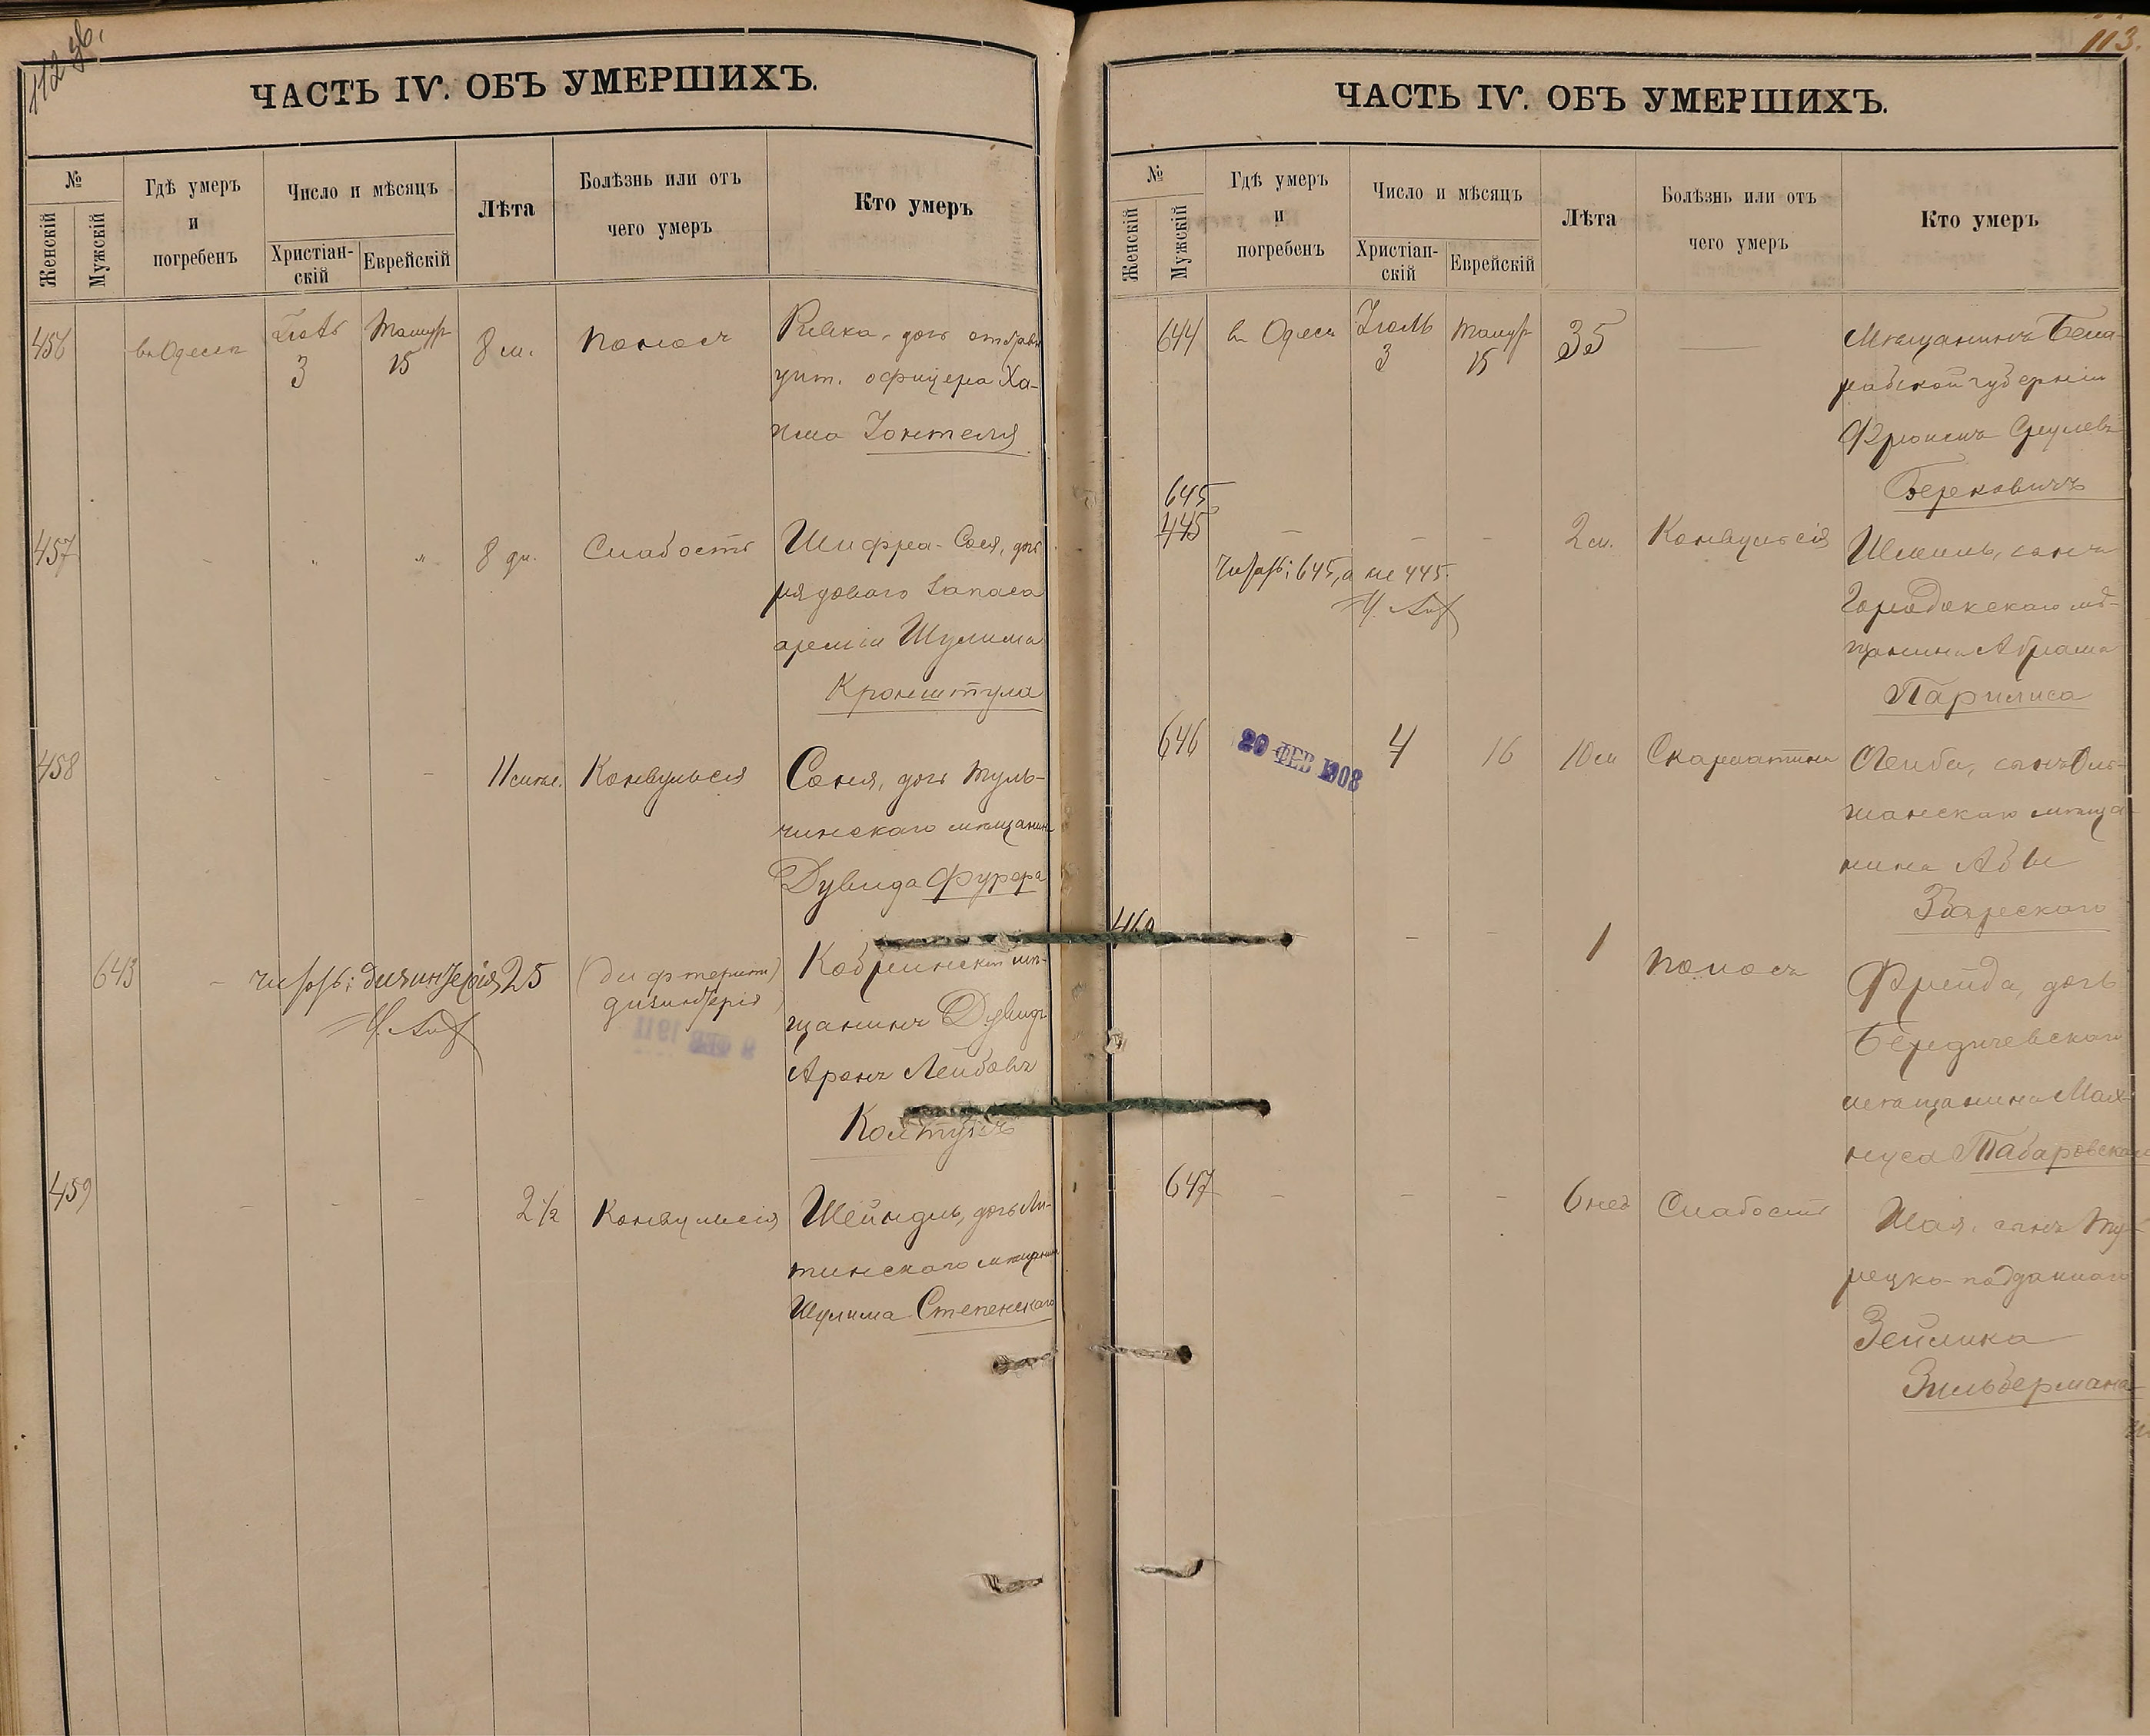 112 об.
ЧАСТЬ IV. ОБЪ УМЕРШИХЪ.
№
Женскій
Мужскій
Гдѣ умеръ
и
погребенъ
Число и мѣсяцъ
Христіан-
скій
Еврейскій
Лѣта
Болѣзнь или отъ
чего умеръ
Кто умеръ
456
въ Одессѣ
3
15
8 м.
Поносъ
Ривка, дочь
унт. офицера Ха-
има
457
8 дн.
Слабость
Шифра-Сося, дочь
рядового запаса
арміи Шулима
Кронштула
458
11 мѣс.
Конвульсія
Соня, дочь Туль-
чинскаго мѣщанина
Дувида Фурера
643
дизинтерія
25
(дифтеритъ)
дизинтерія
Кобринскій мѣ-
щанинъ Дувидъ
Аронъ Лейбовъ
Колтунъ
459
2 1/2
Конвульсія
Шейндль, дочь Ли-
тинскаго мѣщанина
Шулима Степенскаго
113.
ЧАСТЬ IV. ОБЪ УМЕРШИХЪ.
№
Женскій
Мужскій
Гдѣ умеръ
и
погребенъ
Число и мѣсяцъ
Христіан-
скій
Еврейскій
Лѣта
Болѣзнь или отъ
чего умеръ
Кто умеръ
644
въ Одессѣ
Іюль
3
Тамуз
15
35
Мѣщанинъ Бесса-
рабской губерніи
Фроимъ Срулевъ
Берековичъ
645
445
2 м.
Конвульсія
645, а не 445.
Шмиль, сынъ
Городокскаго мѣ-
щанина Абрама
Парилиса
646
20 ФЕВ 1908
4
16
10 м
Скарлатина
Лейба, сынъ Оль-
шанскаго мѣща-
нина Абы
460
1
Поносъ
Фрейда, дочь
Бердичевскаго
мѣщанина Мах-
нуса Табаровскаго
647
6 нед
Слабость
Шая, сынъ Ту-
рецко-подданнаго
Зейлика
Зильбермана